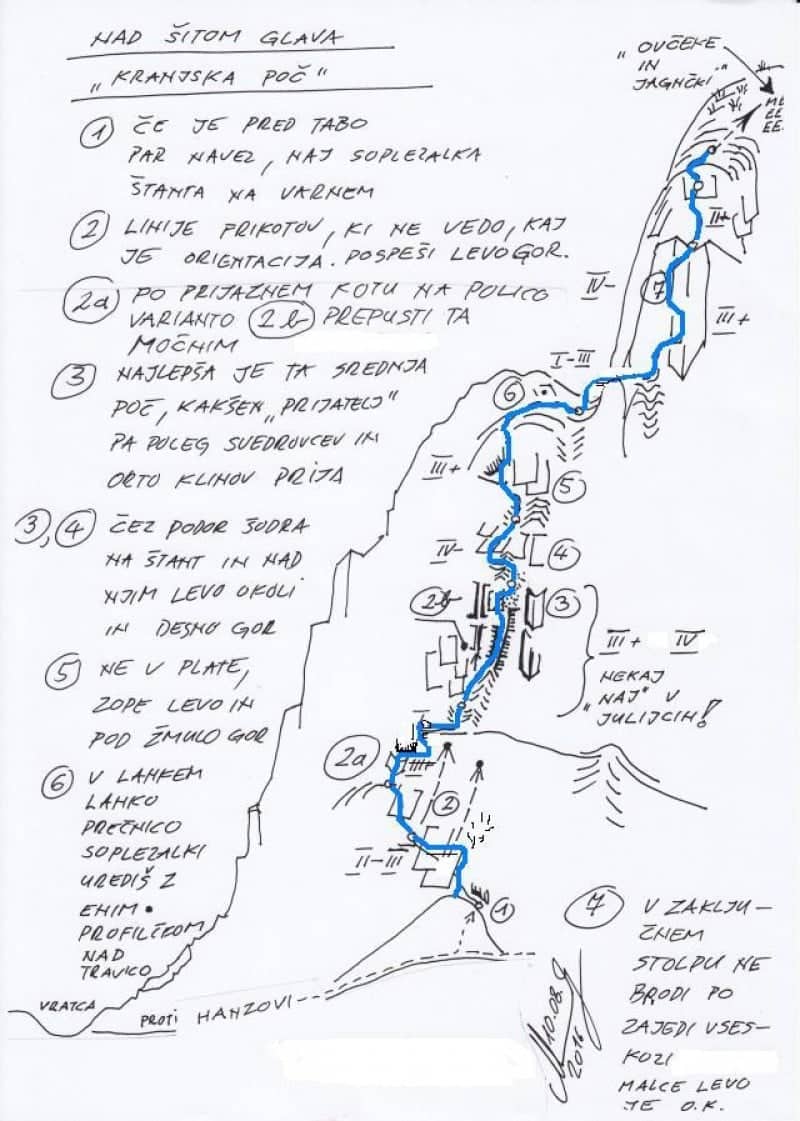 NAD ŠITOM GLAVA
"KRANJSKA POČ"
1 ČE JE PRED TABO
PAR NAVEZ, NAJ SOPLEZALKA
ŠTANTA NA VARNEM
2 LINIJE FRIKOTOV, KI NE VEDO, KAJ
JE ORIENTACIJA. POSPEŠI LEVO GOR.
2a PO PRIJAZNEM KOTU NA POLICO
VARIANTO 2b PREPUSTI TA
MOČNIM
3 NAJLEPŠA JE TA SREDNJA
POČ, KAKŠEN "PRIJATELJ"
PA POLEG SVEDROVCEV IN
ORTO KLINOV PRIJA
3, 4 ČEZ PODOR ŠODRA
NA ŠTANT IN NAD
NJIM LEVO OKOLI
IN DESNO GOR
5 NE V PLATE,
ZOPE LEVO IN
POD ŽMULO GOR
6 V LAHKEM
LAHKO
PREČNICO
SOPLEZALKI
UREDIŠ Z
ENIM
PROFILČKOM
NAD
TRAVICO
VRATCA
PROTI HANZOVI
"OVČEKE
IN
JAGNČKI"
ME
EE
EE.
II+
IV-
7
III+
I-III
6
III+
5
IV-
4
2b
3
III+ IV
NEKAJ
"NAJ" V
JULIJCIH!
2a
III+
2
II-III
1
10.08.
2016
7 V ZAKLJU-
ČNEM
STOLPU NE
BRODI PO
ZAJEDI VSES-
KOZI
MALCE LEVO
JE O.K.